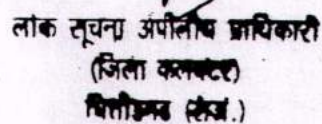 लोक सूचना अपीलीय प्राधिकारी
(जिला कलक्टर)
चित्तौड़गढ़ (राज.)